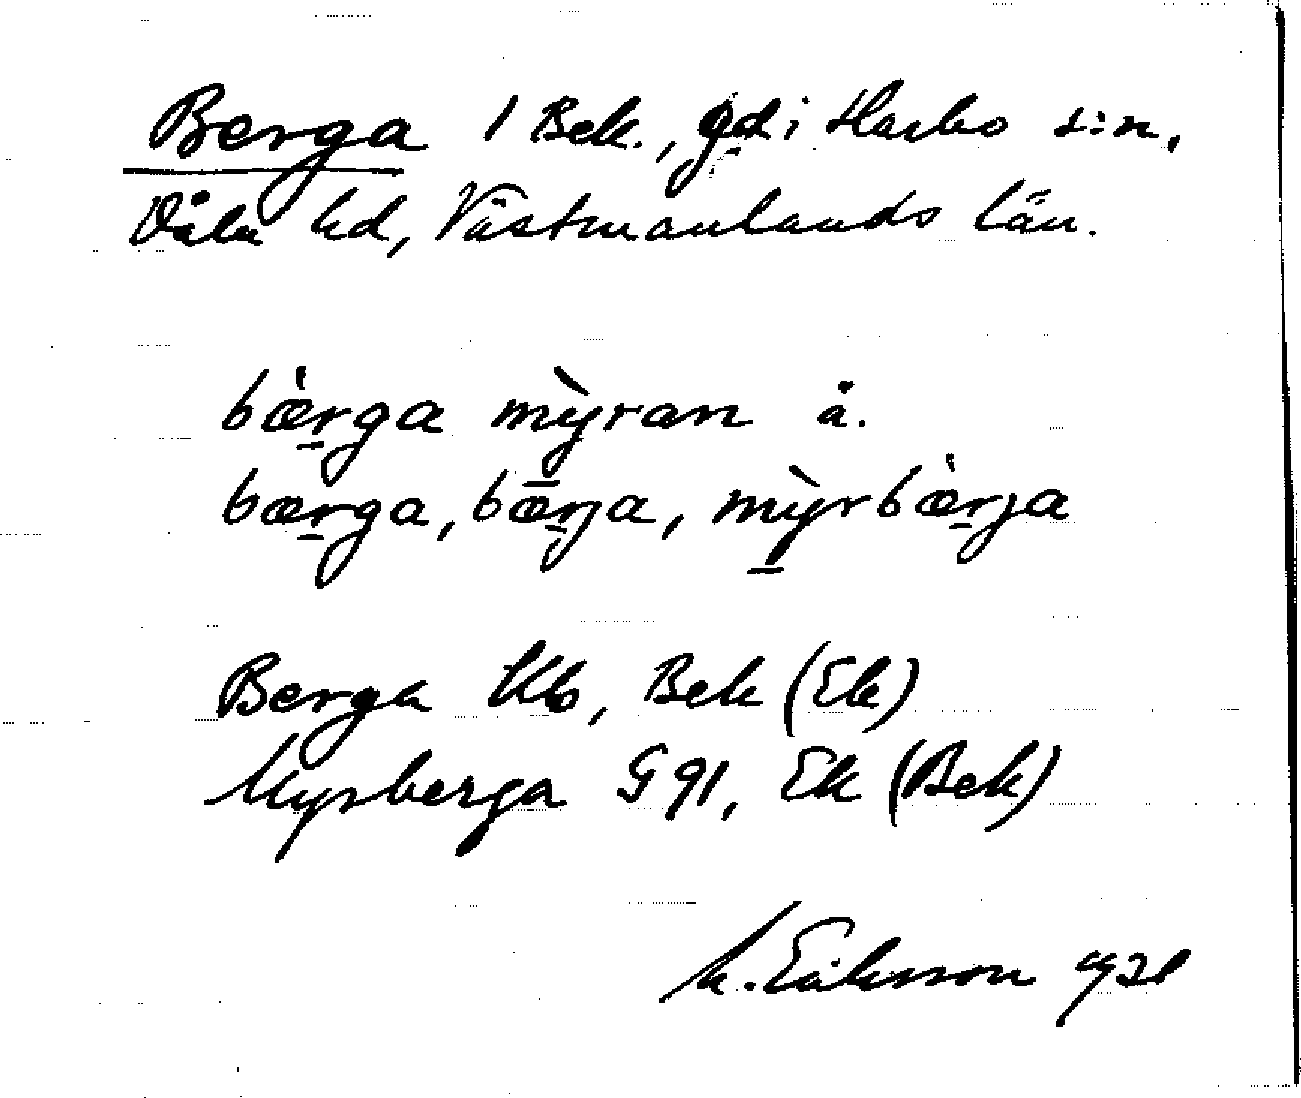 Berga 1 Bek., gd i Harbo s:n,
Våla hd, Västmanlands län.
bæ̀rga mỳran å.
bærga, bærja, mỳrbæ̀rja
Berga Kb, Bek (Ek)
Myrberga G 91, Ek (Bek)
M. Eriksson 1931